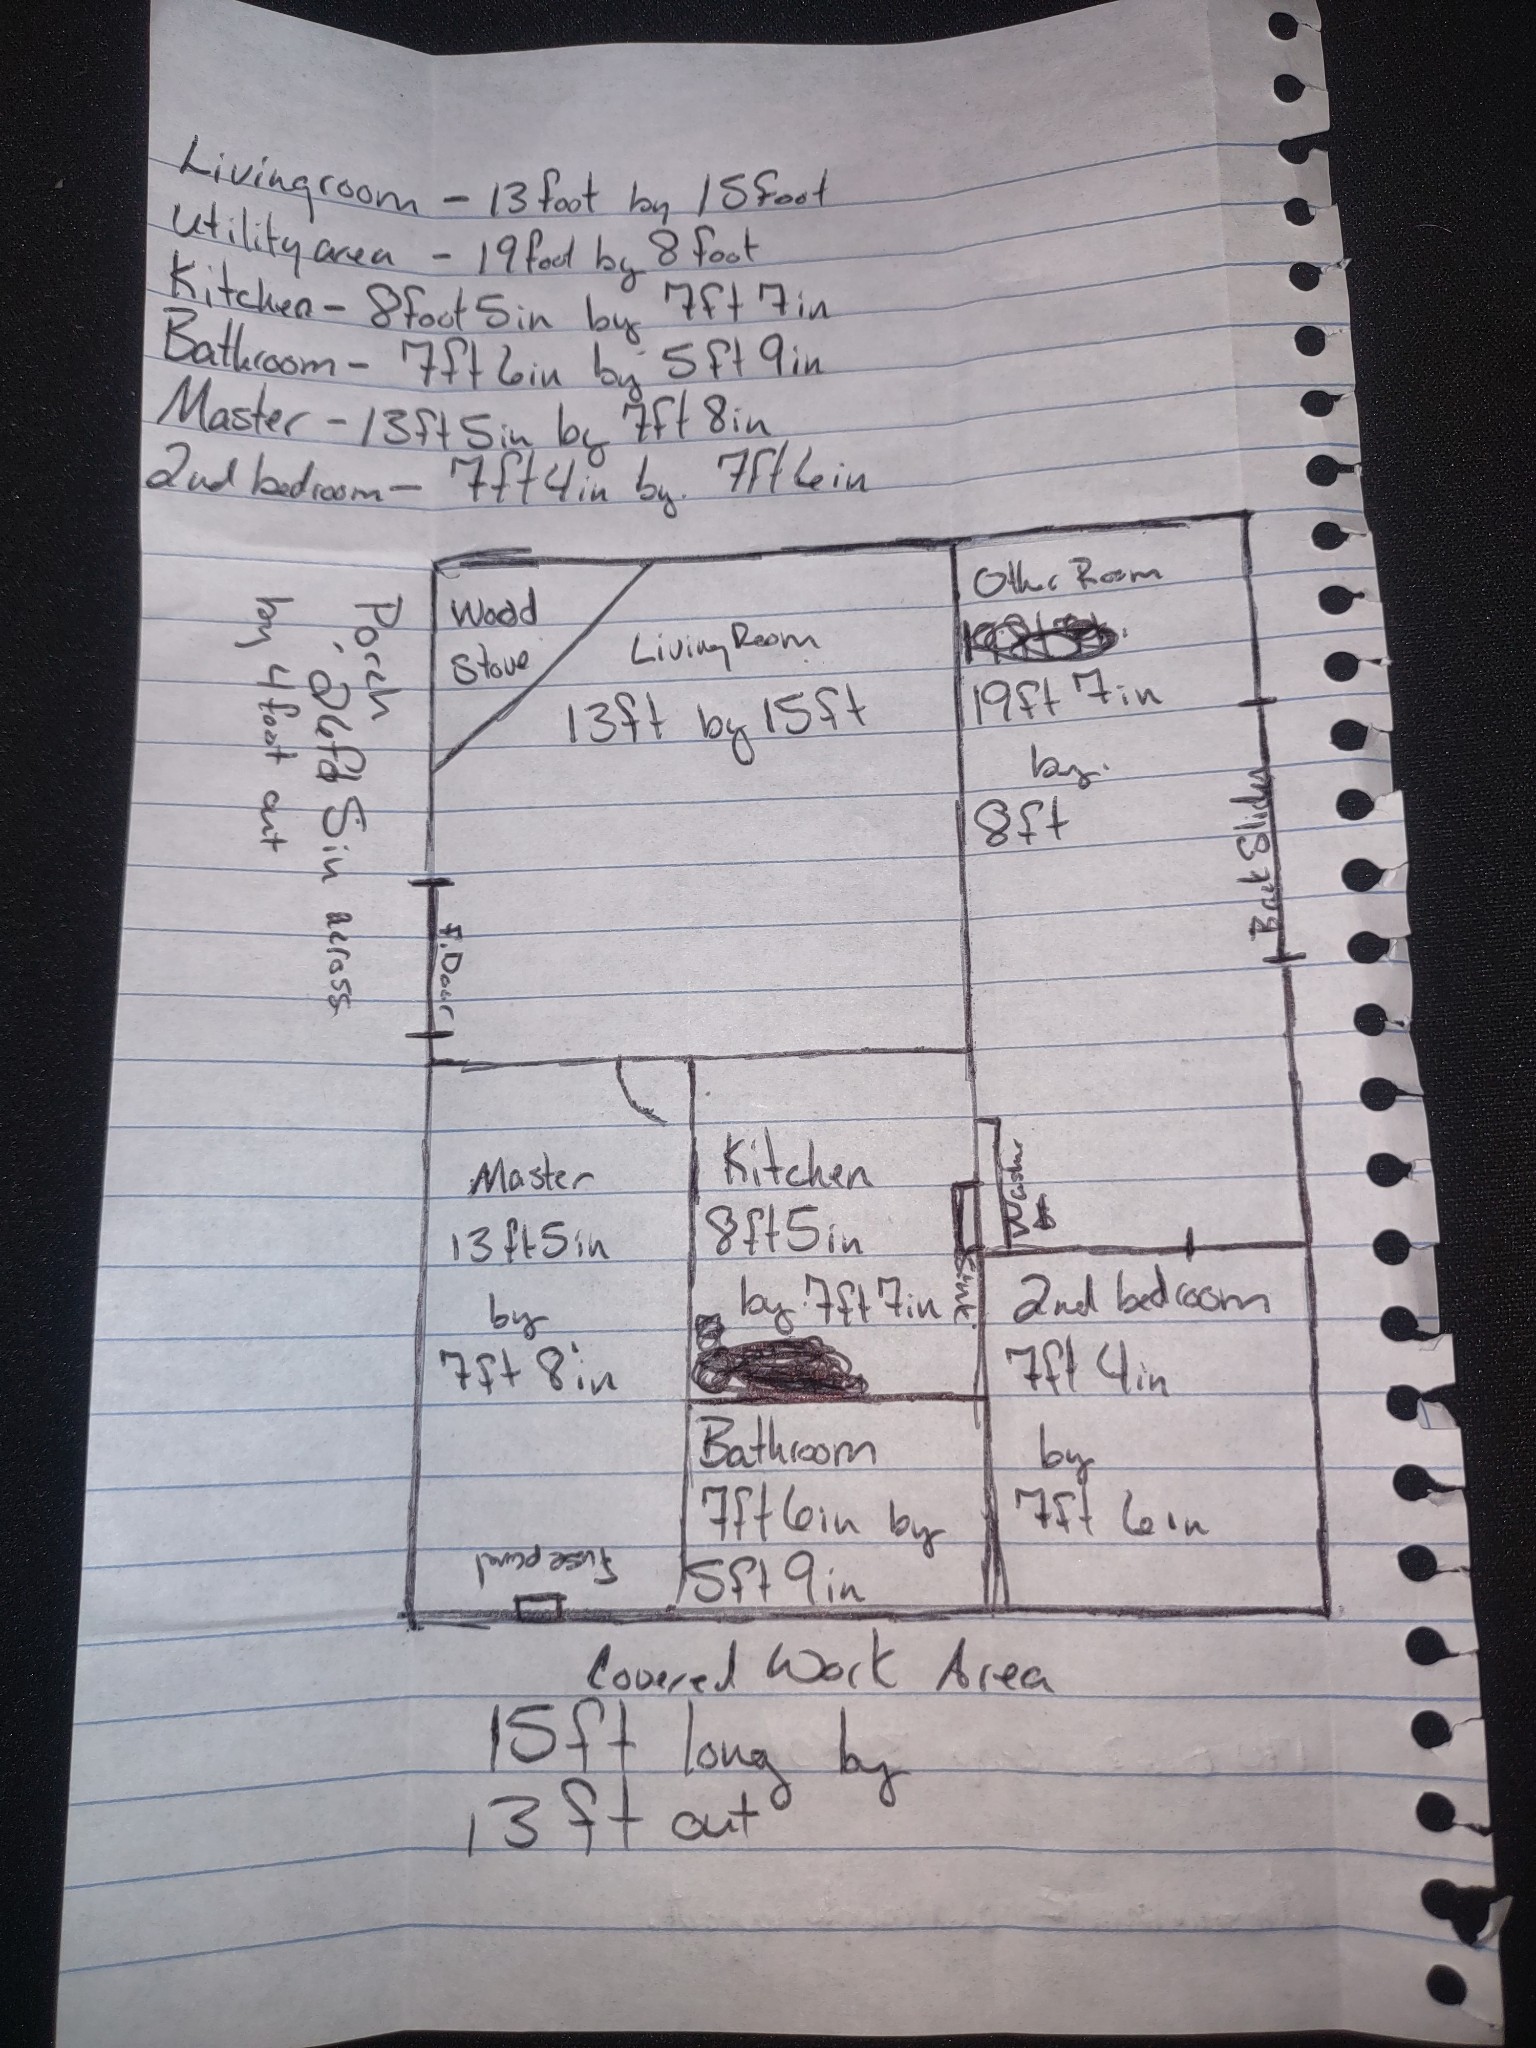 Livingroom - 13foot by 15foot
Utility area - 19foot by 8foot
Kitchen - 8foot 5in by 7ft 7in
Bathroom - 7ft 6in by 5ft 9in
Master - 13ft 5in by 7ft 8in
2nd bedroom - 7ft 4in by. 7ft 6in
Porch
5in across
by 4foot out
Wood
Stove
Living Room
13ft by 15ft
Other Room
19ft 7in
by.
8ft
Back Slider
F. Door
Master
13ft 5in
by
7ft 8in
Fuse panel
Kitchen
8ft 5in
by 7ft 7in
Sink
Washer
Bathroom
7ft 6in by
5ft 9in
2nd bedroom
7ft 4in
by
7ft 6in
Covered Work Area
15ft long by
13ft out